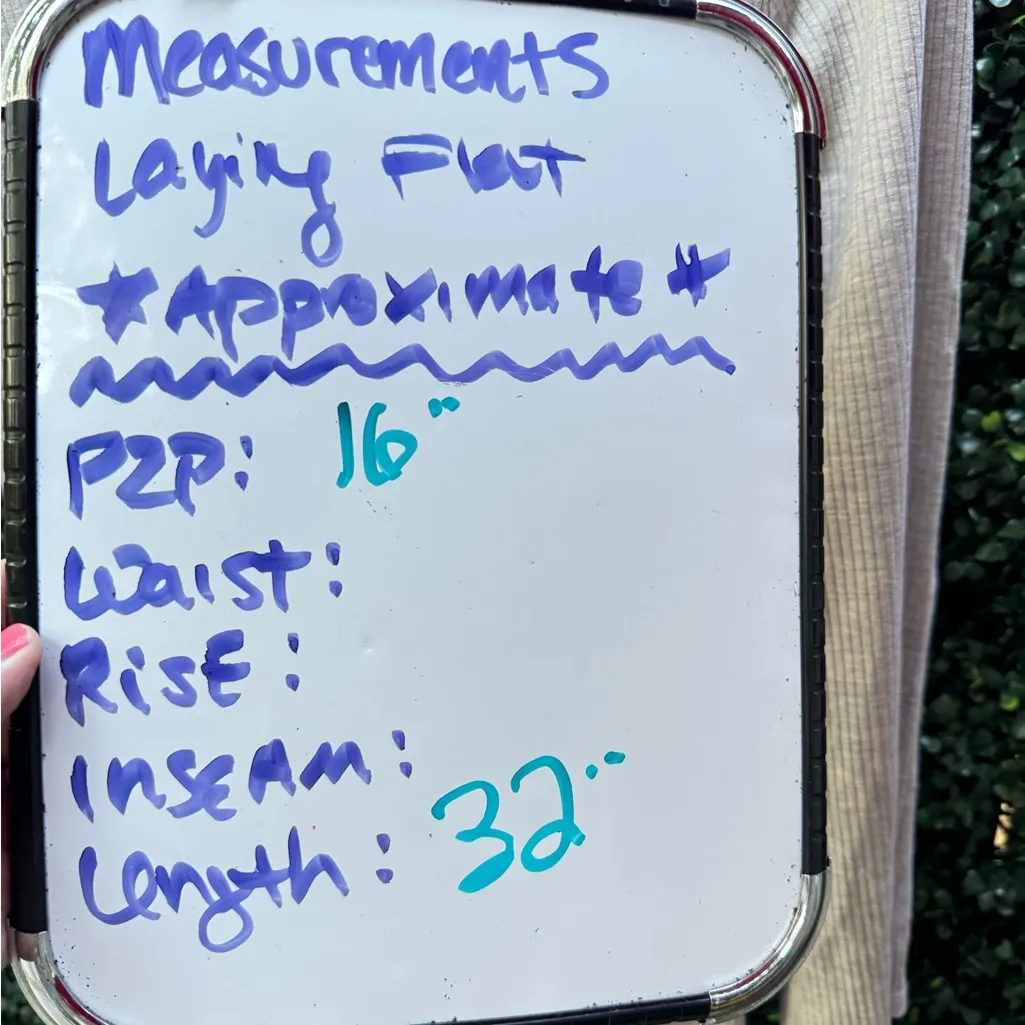 Measurements
Laying Flat
*Approximate*
P2P: 16"
Waist:
RiSE:
INSEAM:
Length: 32"